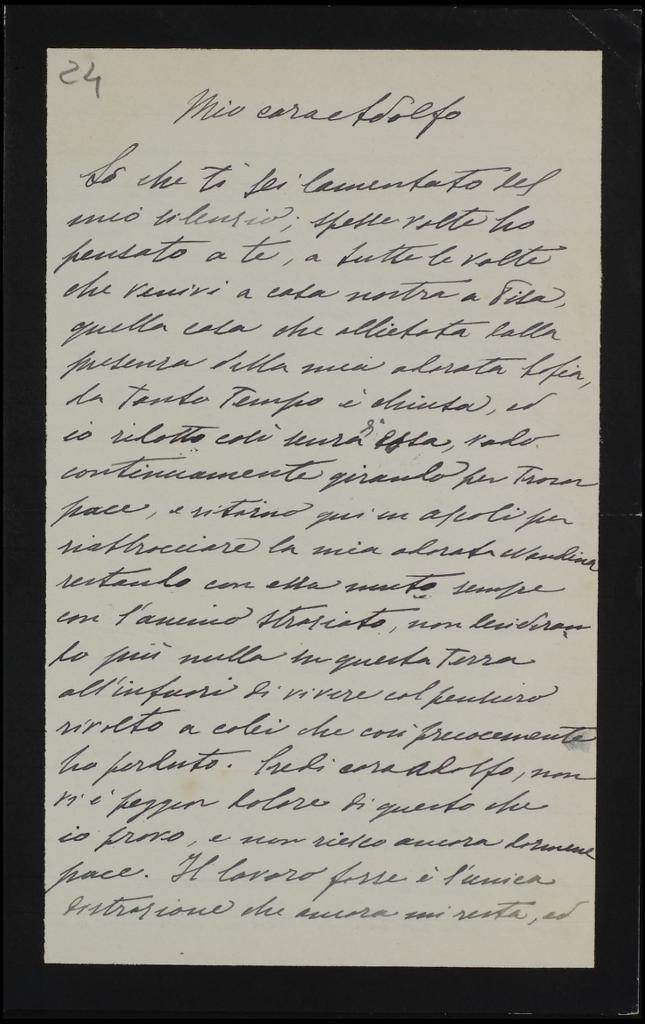 24
Mio caro Adolfo
So che ti sei lamentato del
mio silenzio; spesse volte ho
pensato a te, a tutte le volte
che venivi a casa nostra a Pisa,
quella casa che allietata dalla
presenza della mia adorata Sofia,
da tanto tempo è chiusa, ed
io ridotto così senza di essa, vado
continuamente girando per trovar
pace, e ritorno qui in Ascoli per
riabbracciare la mia adorata Nandina
restando con essa muto sempre
con l'animo straziato, non desideran
do più nulla in questa terra
all'infuori di vivere col pensiero
rivolto a colei che così precocemente
ho perduto. Credi caro Adolfo, non
vi è peggior dolore di questo che
io provo, e non riesco ancora darmene
pace. Il lavoro forse è l'unica
distrazione che ancora mi resta, ed